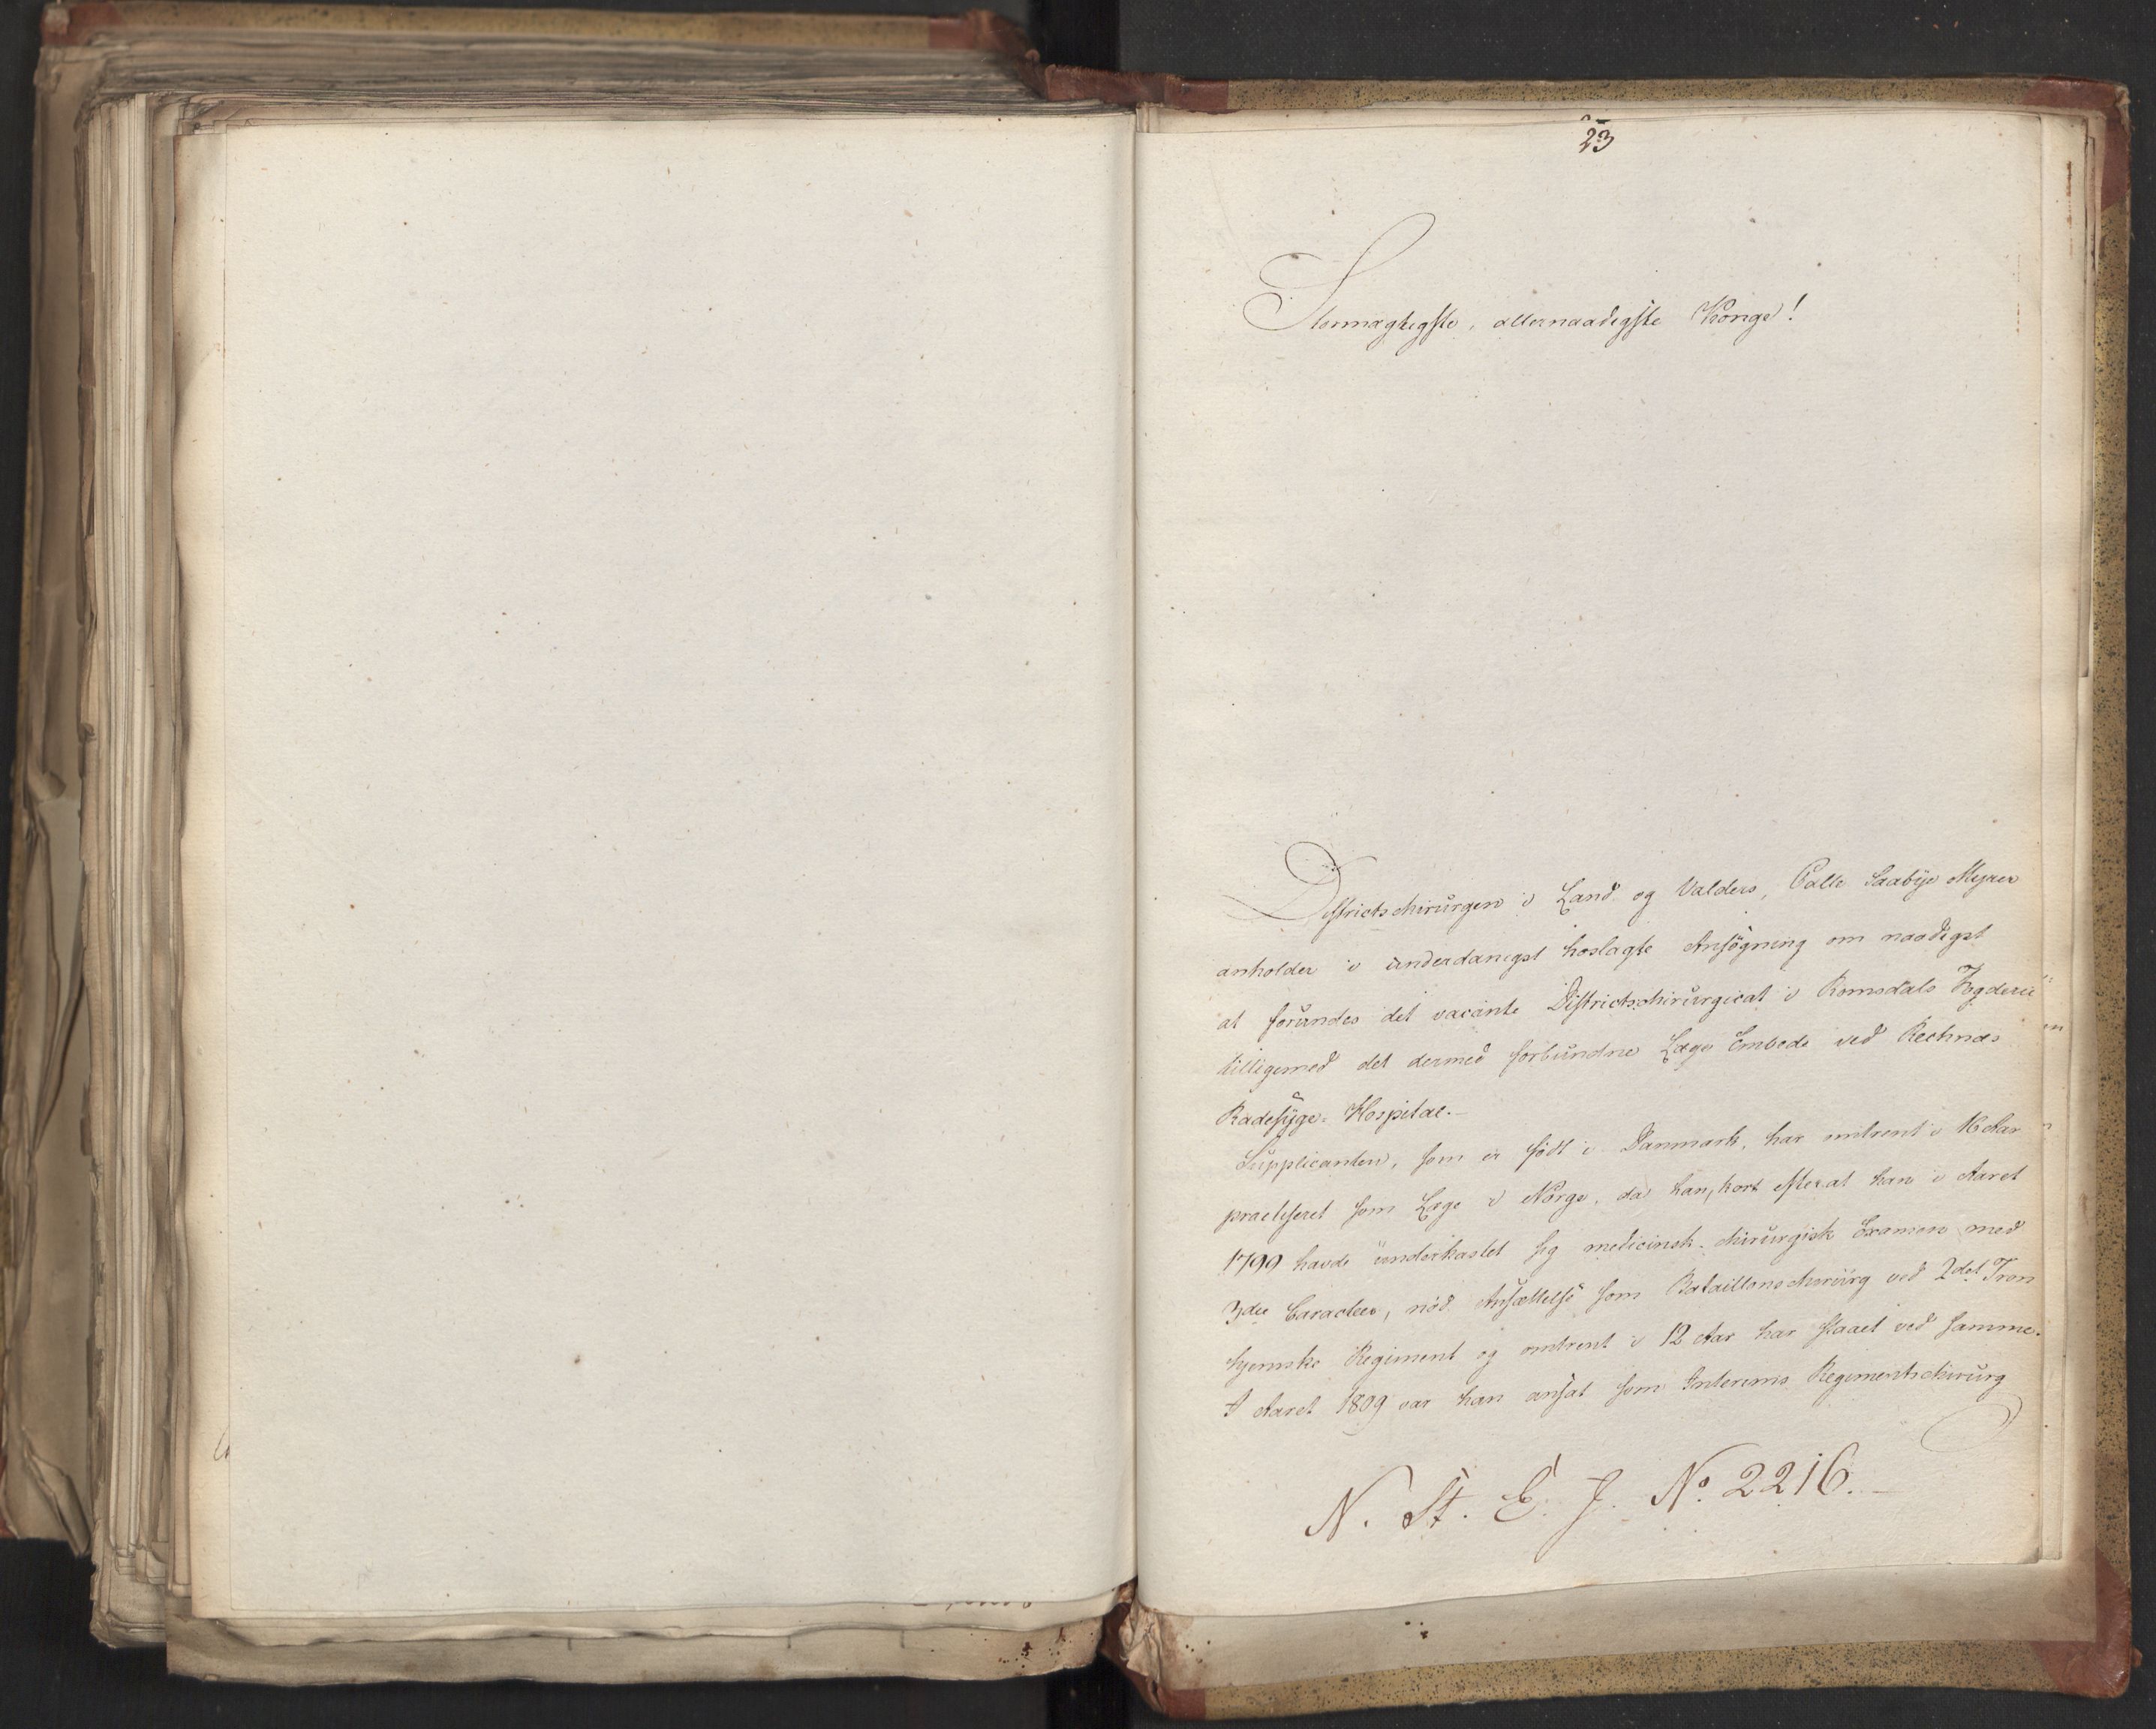 23
Stormægtigste, allernaadigste Konge!
Districtschirurgen i Land og Valders, Palle Saabye Meyer
anholder i underdanigst hoslagte Ansøgning om naadigst
at forundes det vacante Districtschirurgicat i Romsdals Fogderie
tilligemed det dermed forbundne Læge Embede ved Rechnæs
Radesyge-Hospital.-
Supplicanten, som er født i Danmark, har omtrent i 16 Aar
practiseret som Læge i Norge, da han, kort efterat han i Aaret
1799 havde underkastet sig medicinsk-chirurgisk Examen med
3die Caracteer, nød Ansættelse som Bataillonschirurg ved 2det Tron
hjemske Regiment og omtrent i 12 Aar har staaet ved samme.
I Aaret 1809 var han ansat som Interims Regimentschirurg
N. St. E. J. No. 2216.-